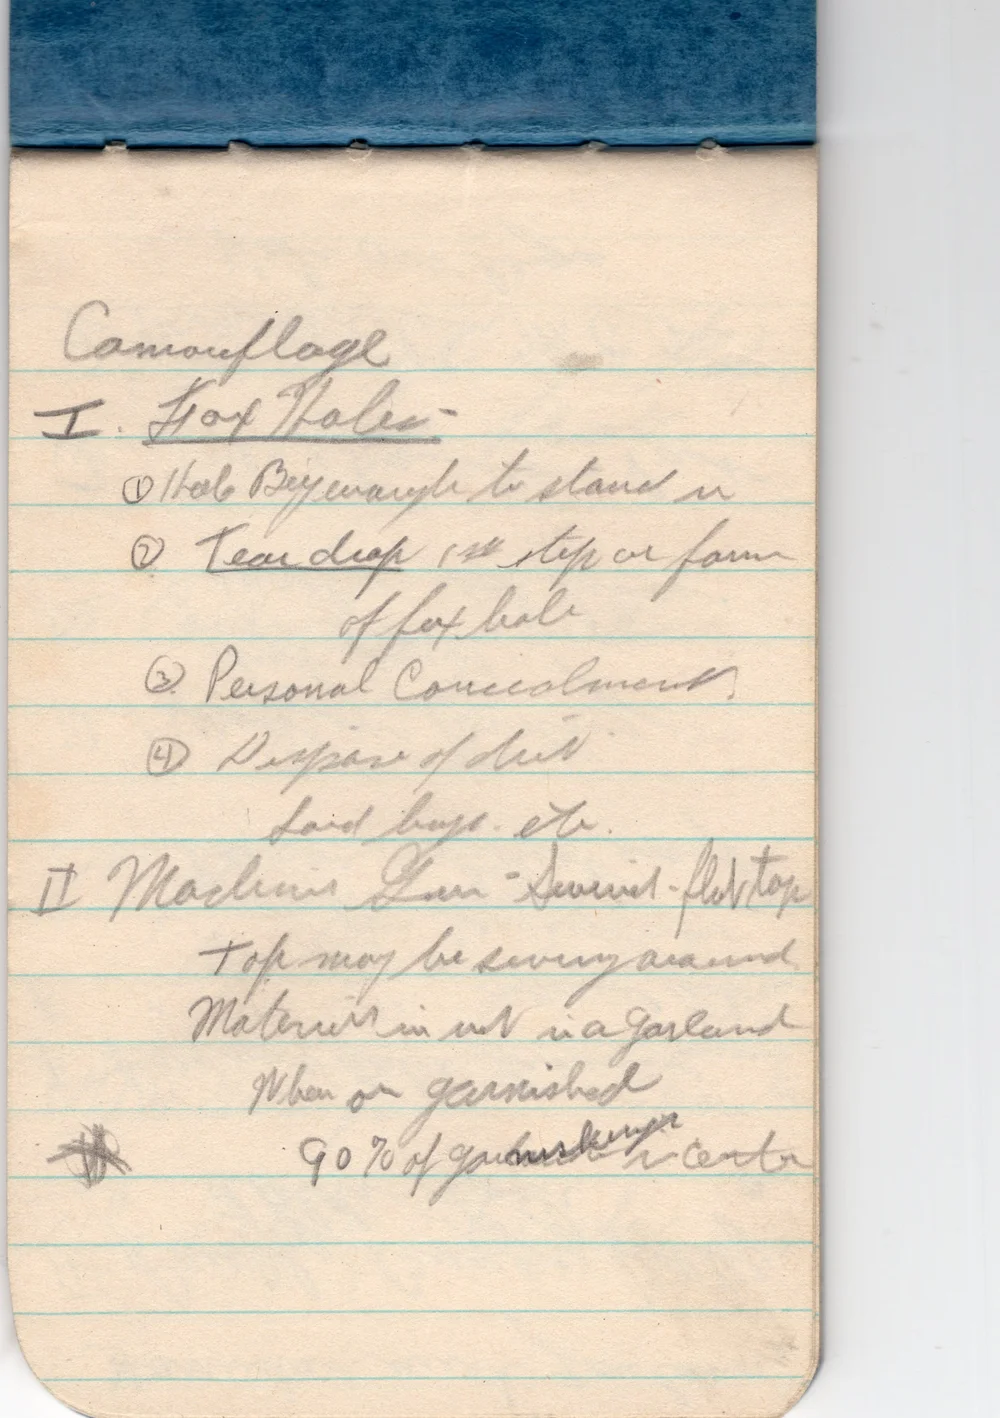 Camouflage
I. Fox Holes-
① Hole Big enough to stand in
② Tear drop 1st step or form
of fox hole
③ Personal Concealment
④ Dispose of dirt
Sand bags. etc.
II Machine Gun - flat top
Top may be swung around
Material in net in a garland
When garnished
90% of in Center